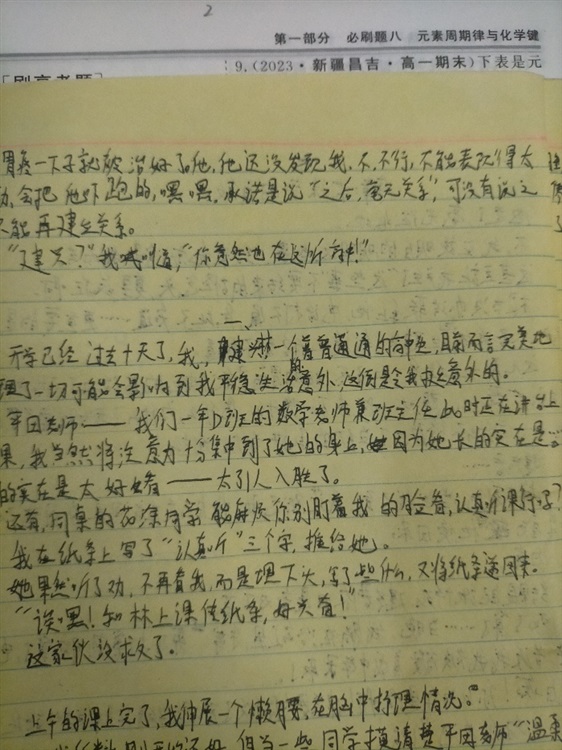 2
第一部分 必刷题八 元素周期律与化学键
9.(2023·新疆昌吉·高一期末)下表是元
一下子就被治好了他,他还没发现我,不,不行,不能表现得太
会把他吓跑的,嘿嘿,承诺是说“之后,毫无关系”,可没有说之
能再建立关系。
我喊道,“你竟然也在这所高中!”
一、
开学已经过去十天了,我,一个普普通通的高中生,目前而言完美地
了一切可能会影响到我平稳生活的意外,这倒是令我挺意外的。
年田老师——我们一年D班的数学老师兼班主任此时正在讲台上
果,我当然将注意力十分集中到了她的身上,因为她长的实在是……
的实在是太好看——太引人入胜了。
还有,同桌的同学能麻烦你别盯着我的脸看,认真听课行吗?
我在纸条上写了“认真听”三个字,推给她。
她果然听了劝,不再看我,而是埋下头,写了些什么,又将纸条递回来。
“诶嘿!和林上课传纸条,好兴奋!”
这家伙没求了。
上午的课上完了,我伸展一个懒腰,在脑中打理情况。
同学摸清楚平田老师“温柔